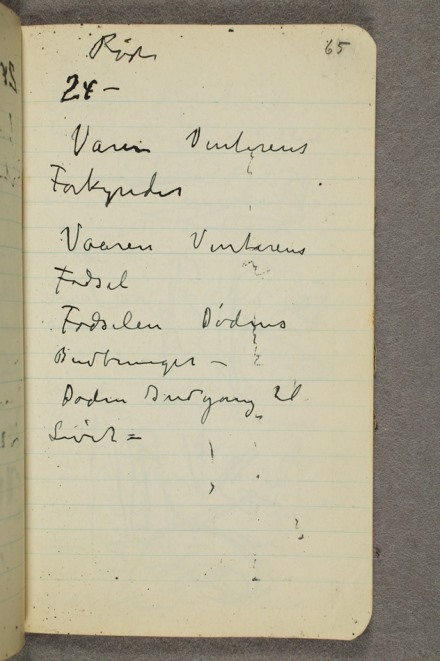 65
24 –
Varen Vinterens
Forkynder
Vaaren Vinterens
Fødsel
Fødselen Dødens
Budbringer –
Døden Indgang til
Livet =